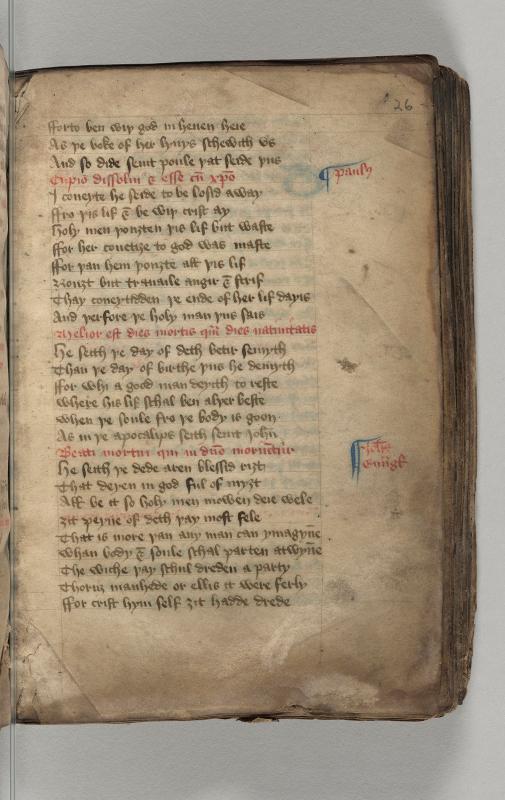 26
fforto ben wiþ god in heuen heie
As þe boke of her lyuys schewith vs
And so dide seint poule þat seide þus
Cupio dissolui & esse cū xpō
¶ pauly
I coueyte he seide to be losid away
ffro þis lif & be wiþ crist ay
Holy men þouȝten þis lif but waste
ffor her couetize to god was maste
ffor þan hem þouȝte all þis lif
Nouȝt but trauaile angir & strif
Thay coueytiden þe ende of her lif dayis
And þerfore þe holy man þus sais
Melior est dies mortis qm̄ dies natiuitatis
He seith þe day of deth betir semyth
Than þe day of birthe þus he demyth
ffor whi a good man deyith to reste
where his lif schal ben alþer beste
when þe soule fro þe body is goon
As in þe apocalips seith seint John
Beati mortui qui in dn̄o moriūtur
¶ Joħes
He seith þe dede aren blessid riȝt
That deyen in god ful of myȝt
All be it so holy men mowen deie wele
ȝit peyne of deth þay most fele
That is more þan any man can ymagyne
whan body & soule schal parten atwyne
The wiche þay schul dreden a party
Thoruȝ manhede or ellis it were ferly
ffor crist hym self ȝit hadde drede